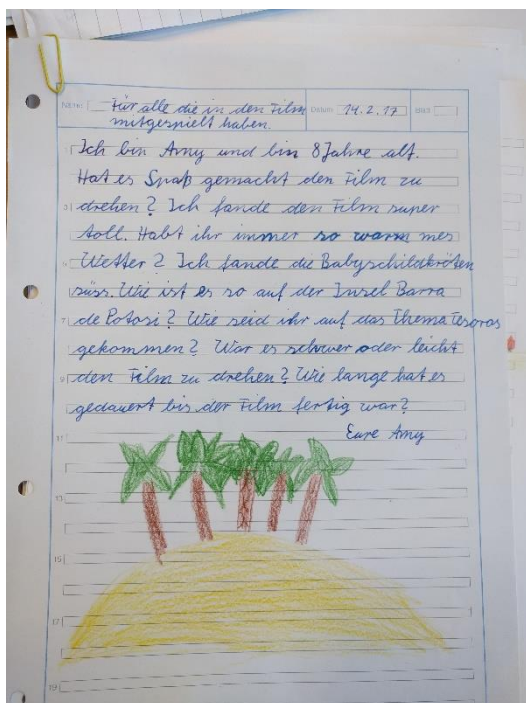 Name: Für alle die in den Film Datum 14.2.17 Blatt
mitgespielt haben.
1 Ich bin Amy und bin 8 Jahre alt.
Hat es Spaß gemacht den Film zu
3 drehen? Ich fande den Film super
toll. Habt ihr immer so warm mes
5 Wetter? Ich fande die Babyschildkröten
süss. Wie ist es so auf der Insel Barra
7 de Potosi? Wie seid ihr auf das Thema Tesoros
gekommen? War es schwer oder leicht
9 den Film zu drehen? Wie lange hat es
gedauert bis der Film fertig war?
11 Eure Amy
13
15
17
19